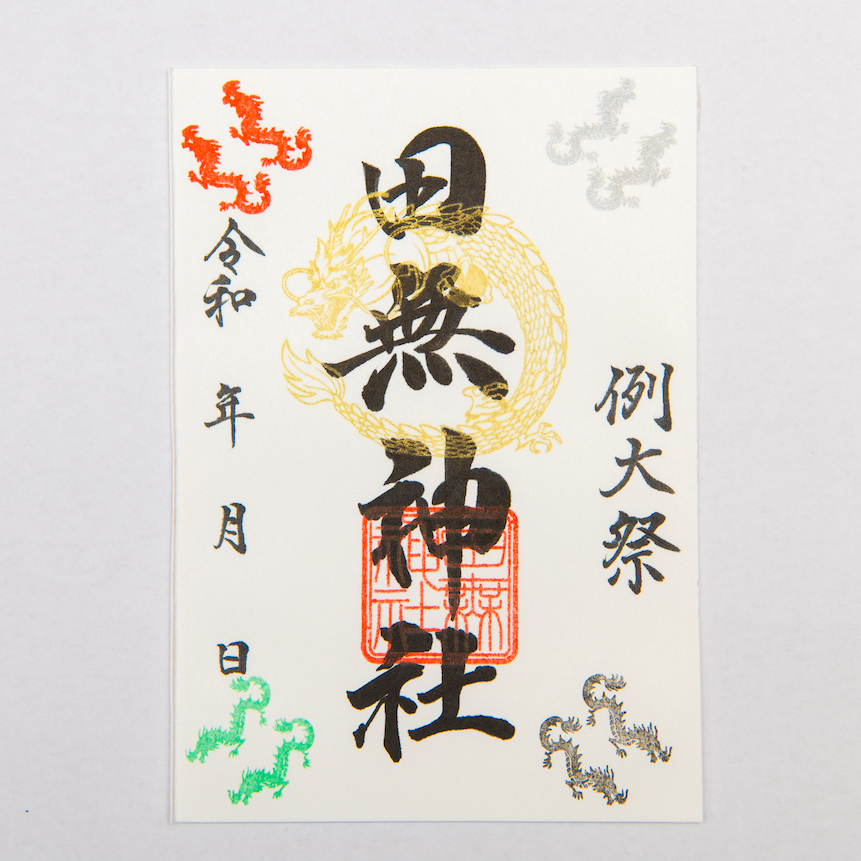 例大祭
田無神社
田無神社
令和 年 月 日